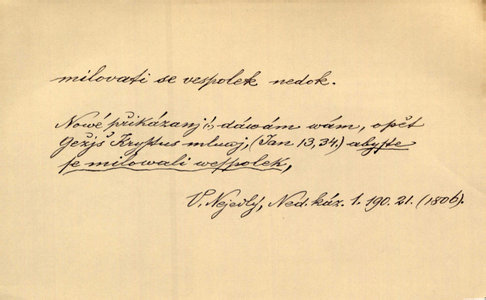 milovati se vespolek nedok.
Nowé přikázanj (!) dáwám wám, opět
Gežjš Krystus mluwj, (Jan 13,34.) abyste
se milowali wespolek,
V. Nejedlý, Ned. káz. 1. 190. 21. (1806).